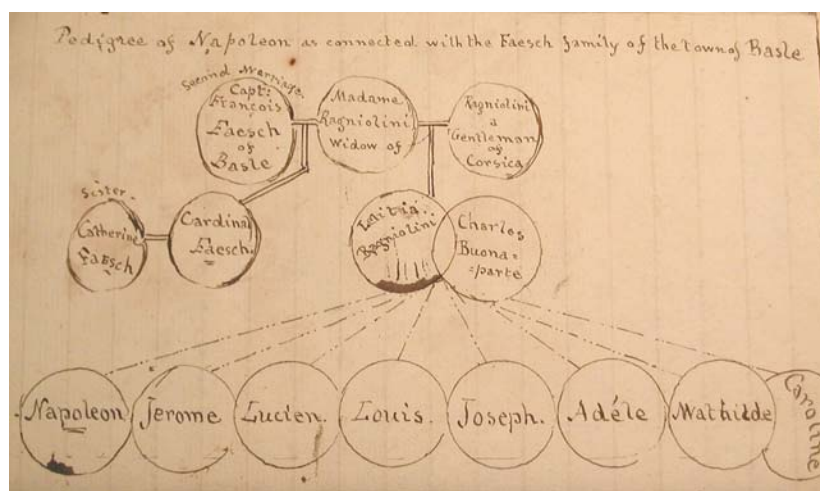 Pedigree of Napoleon as connected with the Faesch family of the town of Basle
Second Marriage.
Capt:
François
Faesch
of
Basle
Madame
Ragniolini
Widow of
Ragniolini
a
Gentleman
of
Corsica
Sister.
Catherine
Faesch
Cardinal
Faesch.
Letitia
Ragniolini
Charles
Buona=
=parte
Napoleon
Jerome
Lucien.
Louis.
Joseph.
Adéle
Mathilde
Caroline